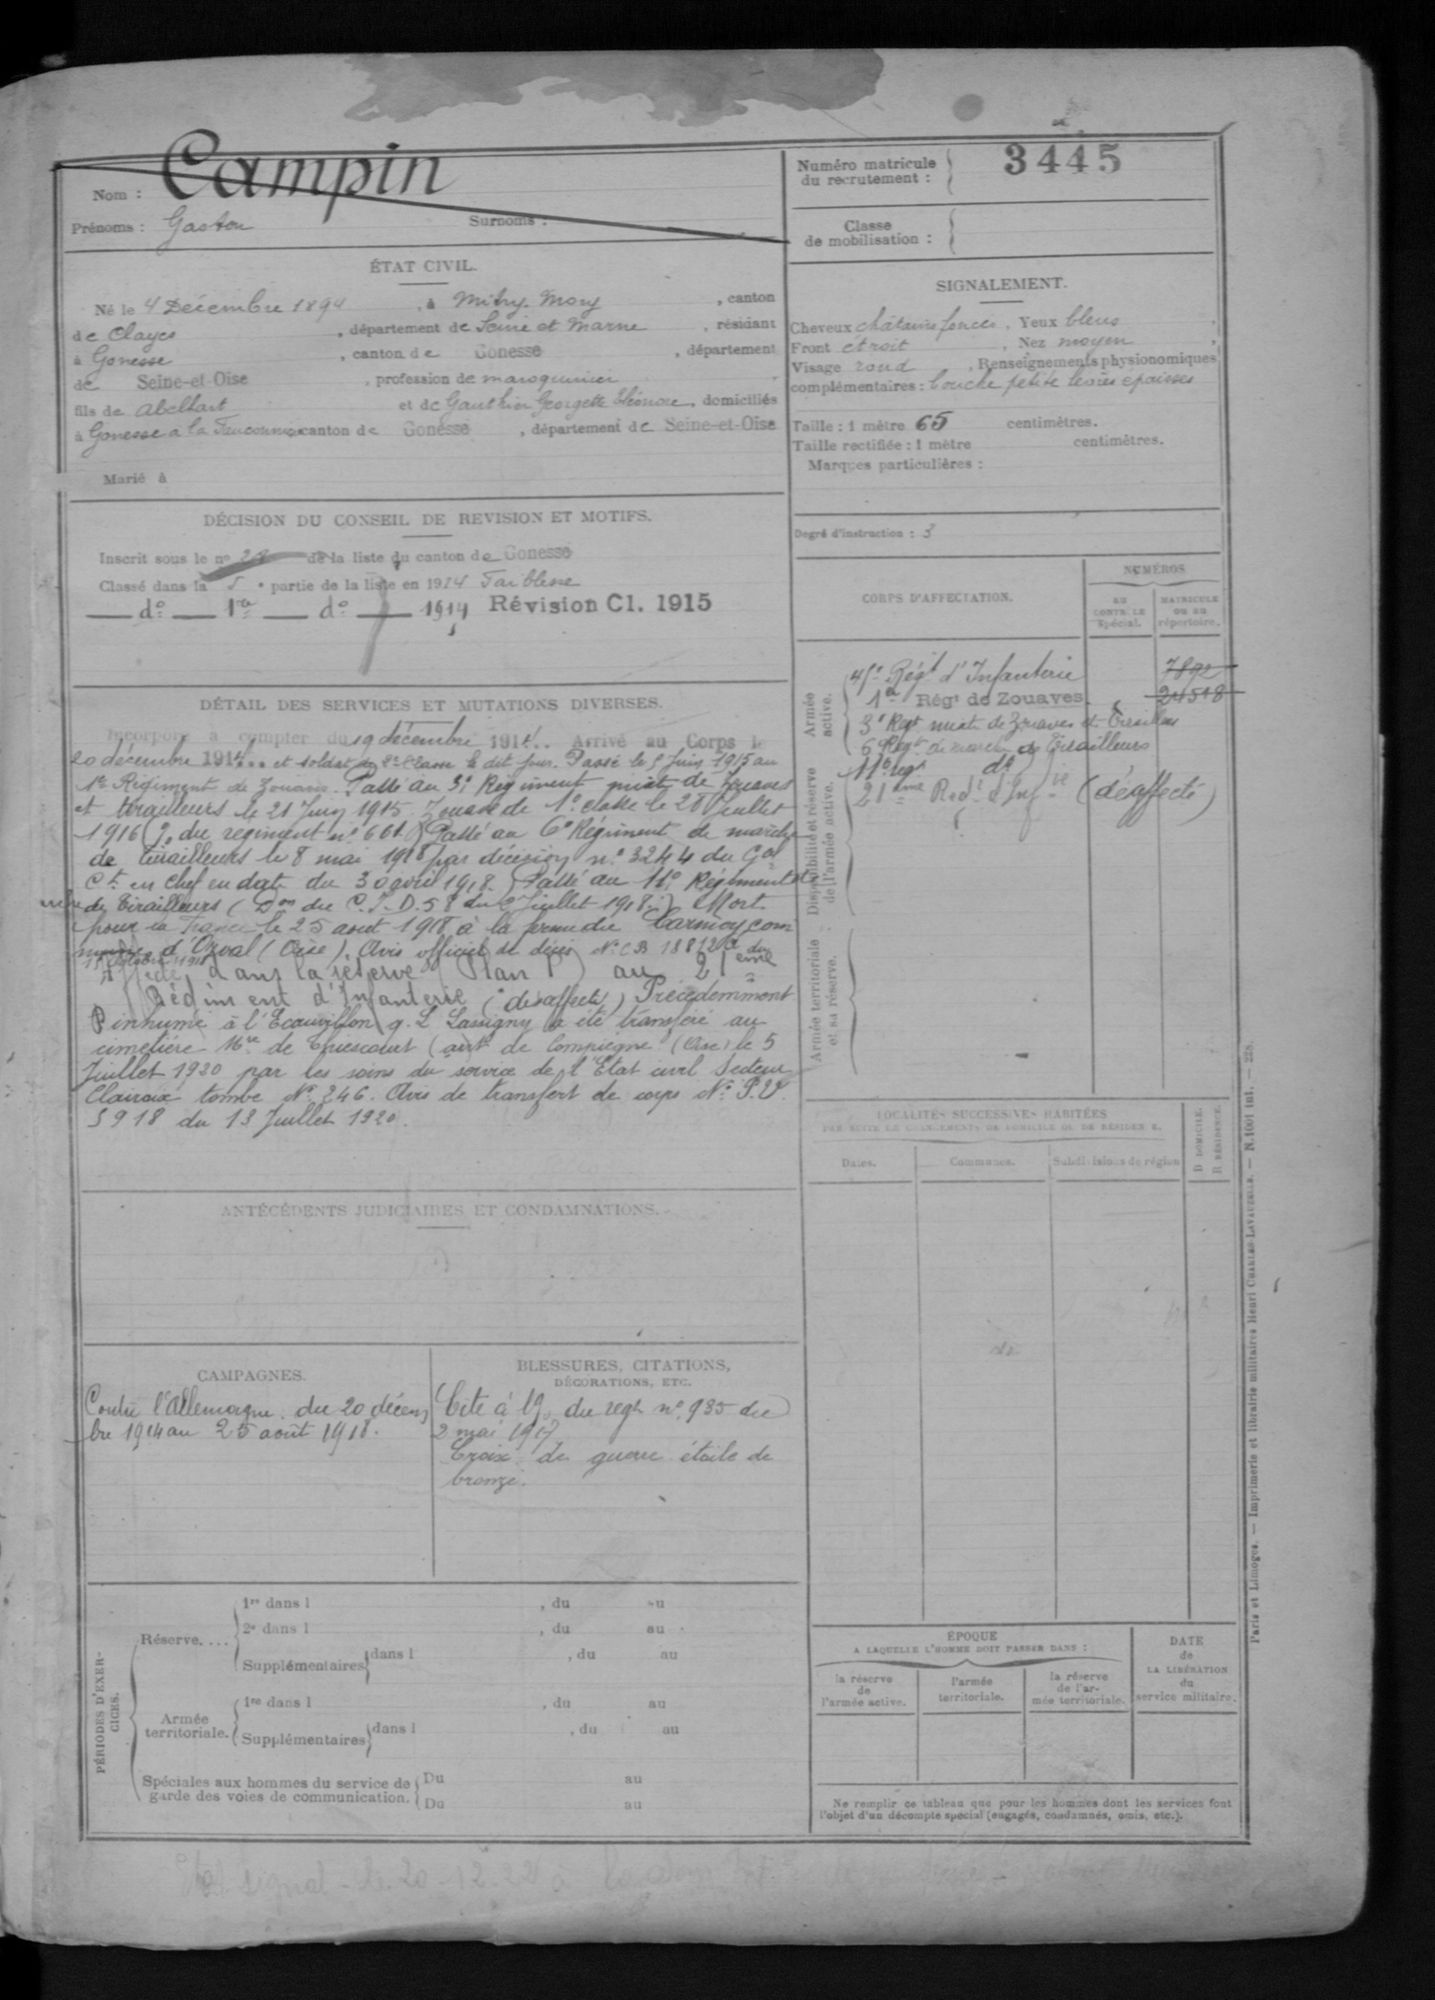 Nom : Campin
Prénoms : Gaston Surnoms :
Numéro matricule
du recrutement : 3445
Classe
de mobilisation :
ÉTAT CIVIL.
Né le 4 Décembre 1894, à Mitry-Mory, canton
de Clayes, département de Seine et Marne, résidant
à Gonesse, canton de Gonesse, département
de Seine-et-Oise, profession de maroquinier
fils de Abelhart et de Gauthier Georgette Eléonore, domiciliés
à Gonesse a la canton de Gonesse, département de Seine-et-Oise
Marié à
SIGNALEMENT.
Cheveux châtains foncés, Yeux bleus,
Front étroit, Nez moyen,
Visage rond, Renseignements physionomiques
complémentaires : bouche petite lèvres épaisses
Taille : 1 mètre 65 centimètres.
Taille rectifiée : 1 mètre centimètres.
Marques particulières :
Degré d'instruction : 3
DÉCISION DU CONSEIL DE REVISION ET MOTIFS.
Inscrit sous le nº de la liste du canton de Gonesse
Classé dans la 5e partie de la liste en 1914 Faiblesse
— dº — 1re — dº — 1914 Révision Cl. 1915
DÉTAIL DES SERVICES ET MUTATIONS DIVERSES.
Incorporé à compter du 19 décembre 1914.. Arrivé au Corps le
20 décembre 1914.. et soldat de 2e Classe le dit jour. Passé le 5 Juin 1915 au
1er Régiment de Zouaves. Passé au 3e Régiment mixte de Zouaves
et tirailleurs le 21 Juin 1915. Zouave de 1e classe le 28 Juillet
1916 (O. du régiment nº 601) Passé au 6e Régiment de marche
de tirailleurs le 8 mai 1918 par décision nº 3244 du Gal
Ct en chef en date du 30 avril 1918. Passé au 11e Régiment de
de Tirailleurs (Don du C.I.D. 58 du Juillet 1918.) Mort
pour la France le 25 août 1918 à la ferme du Carmoy com
mune d'Orval (Oise). Avis officiel de décès Nº CB 18812 du
1918
Affecté dans la réserve (Plan P) au 21ème
Régiment d'Infanterie (désaffecté) Précédemment
inhumé à l'Ecouvillon q. L Lassigny a été transféré au
cimetière Mre de Thiescourt (arrt de Compiègne (Oise) le 5
Juillet 1920 par les soins du service de l'Etat civil Secteur
Clairoix tombe Nº 346. Avis de transfert de corps Nº P.V.
5918 du 13 Juillet 1920.
CORPS D'AFFECTATION.
NUMÉROS
AU CONTRÔLE spécial.
MATRICULE OU AU répertoire.
Armée active.
45e Régt d'Infanterie 7892
1er Régt de Zouaves 24518
3e Régt mixte de Zouaves et Tirailleurs
6e Régt de marche de Tirailleurs
11e regt dº
21ème Regt d'Infie (déaffecté)
Disponibilité et réserve de l'armée active.
Armée territoriale et sa réserve.
LOCALITÉS SUCCESSIVES HABITÉES
PAR SUITE DE CHANGEMENTS DE DOMICILE OU DE RÉSIDENCE.
Dates. Communes. Subdivisions de région D DOMICILE. R RÉSIDENCE.
ANTÉCÉDENTS JUDICIAIRES ET CONDAMNATIONS.
CAMPAGNES.
Contre l'Allemagne. du 20 décem
bre 1914 au 25 août 1918.
BLESSURES, CITATIONS,
DÉCORATIONS, ETC.
Cité à l'O. du regt nº 935 du
2 mai 1917
Croix de guerre étoile de
bronze.
PÉRIODES D'EXERCICES.
Réserve....
1re dans l , du au
2e dans l , du au
Supplémentaires dans l , du au
Armée territoriale.
1re dans l , du au
Supplémentaires dans l , du au
Spéciales aux hommes du service de
garde des voies de communication.
Du au
Du au
ÉPOQUE
A LAQUELLE L'HOMME DOIT PASSER DANS :
la réserve de l'armée active.
l'armée territoriale.
la réserve de l'armée territoriale.
DATE de LA LIBÉRATION du service militaire.
Ne remplir ce tableau que pour les hommes dont les services font
l'objet d'un décompte spécial (engagés, condamnés, omis, etc.).
Paris et Limoges. — Imprimerie et librairie militaires Henri CHARLES-LAVAUZELLE. — N. 1001 int. — 228.
signal - le 20-12-22 à